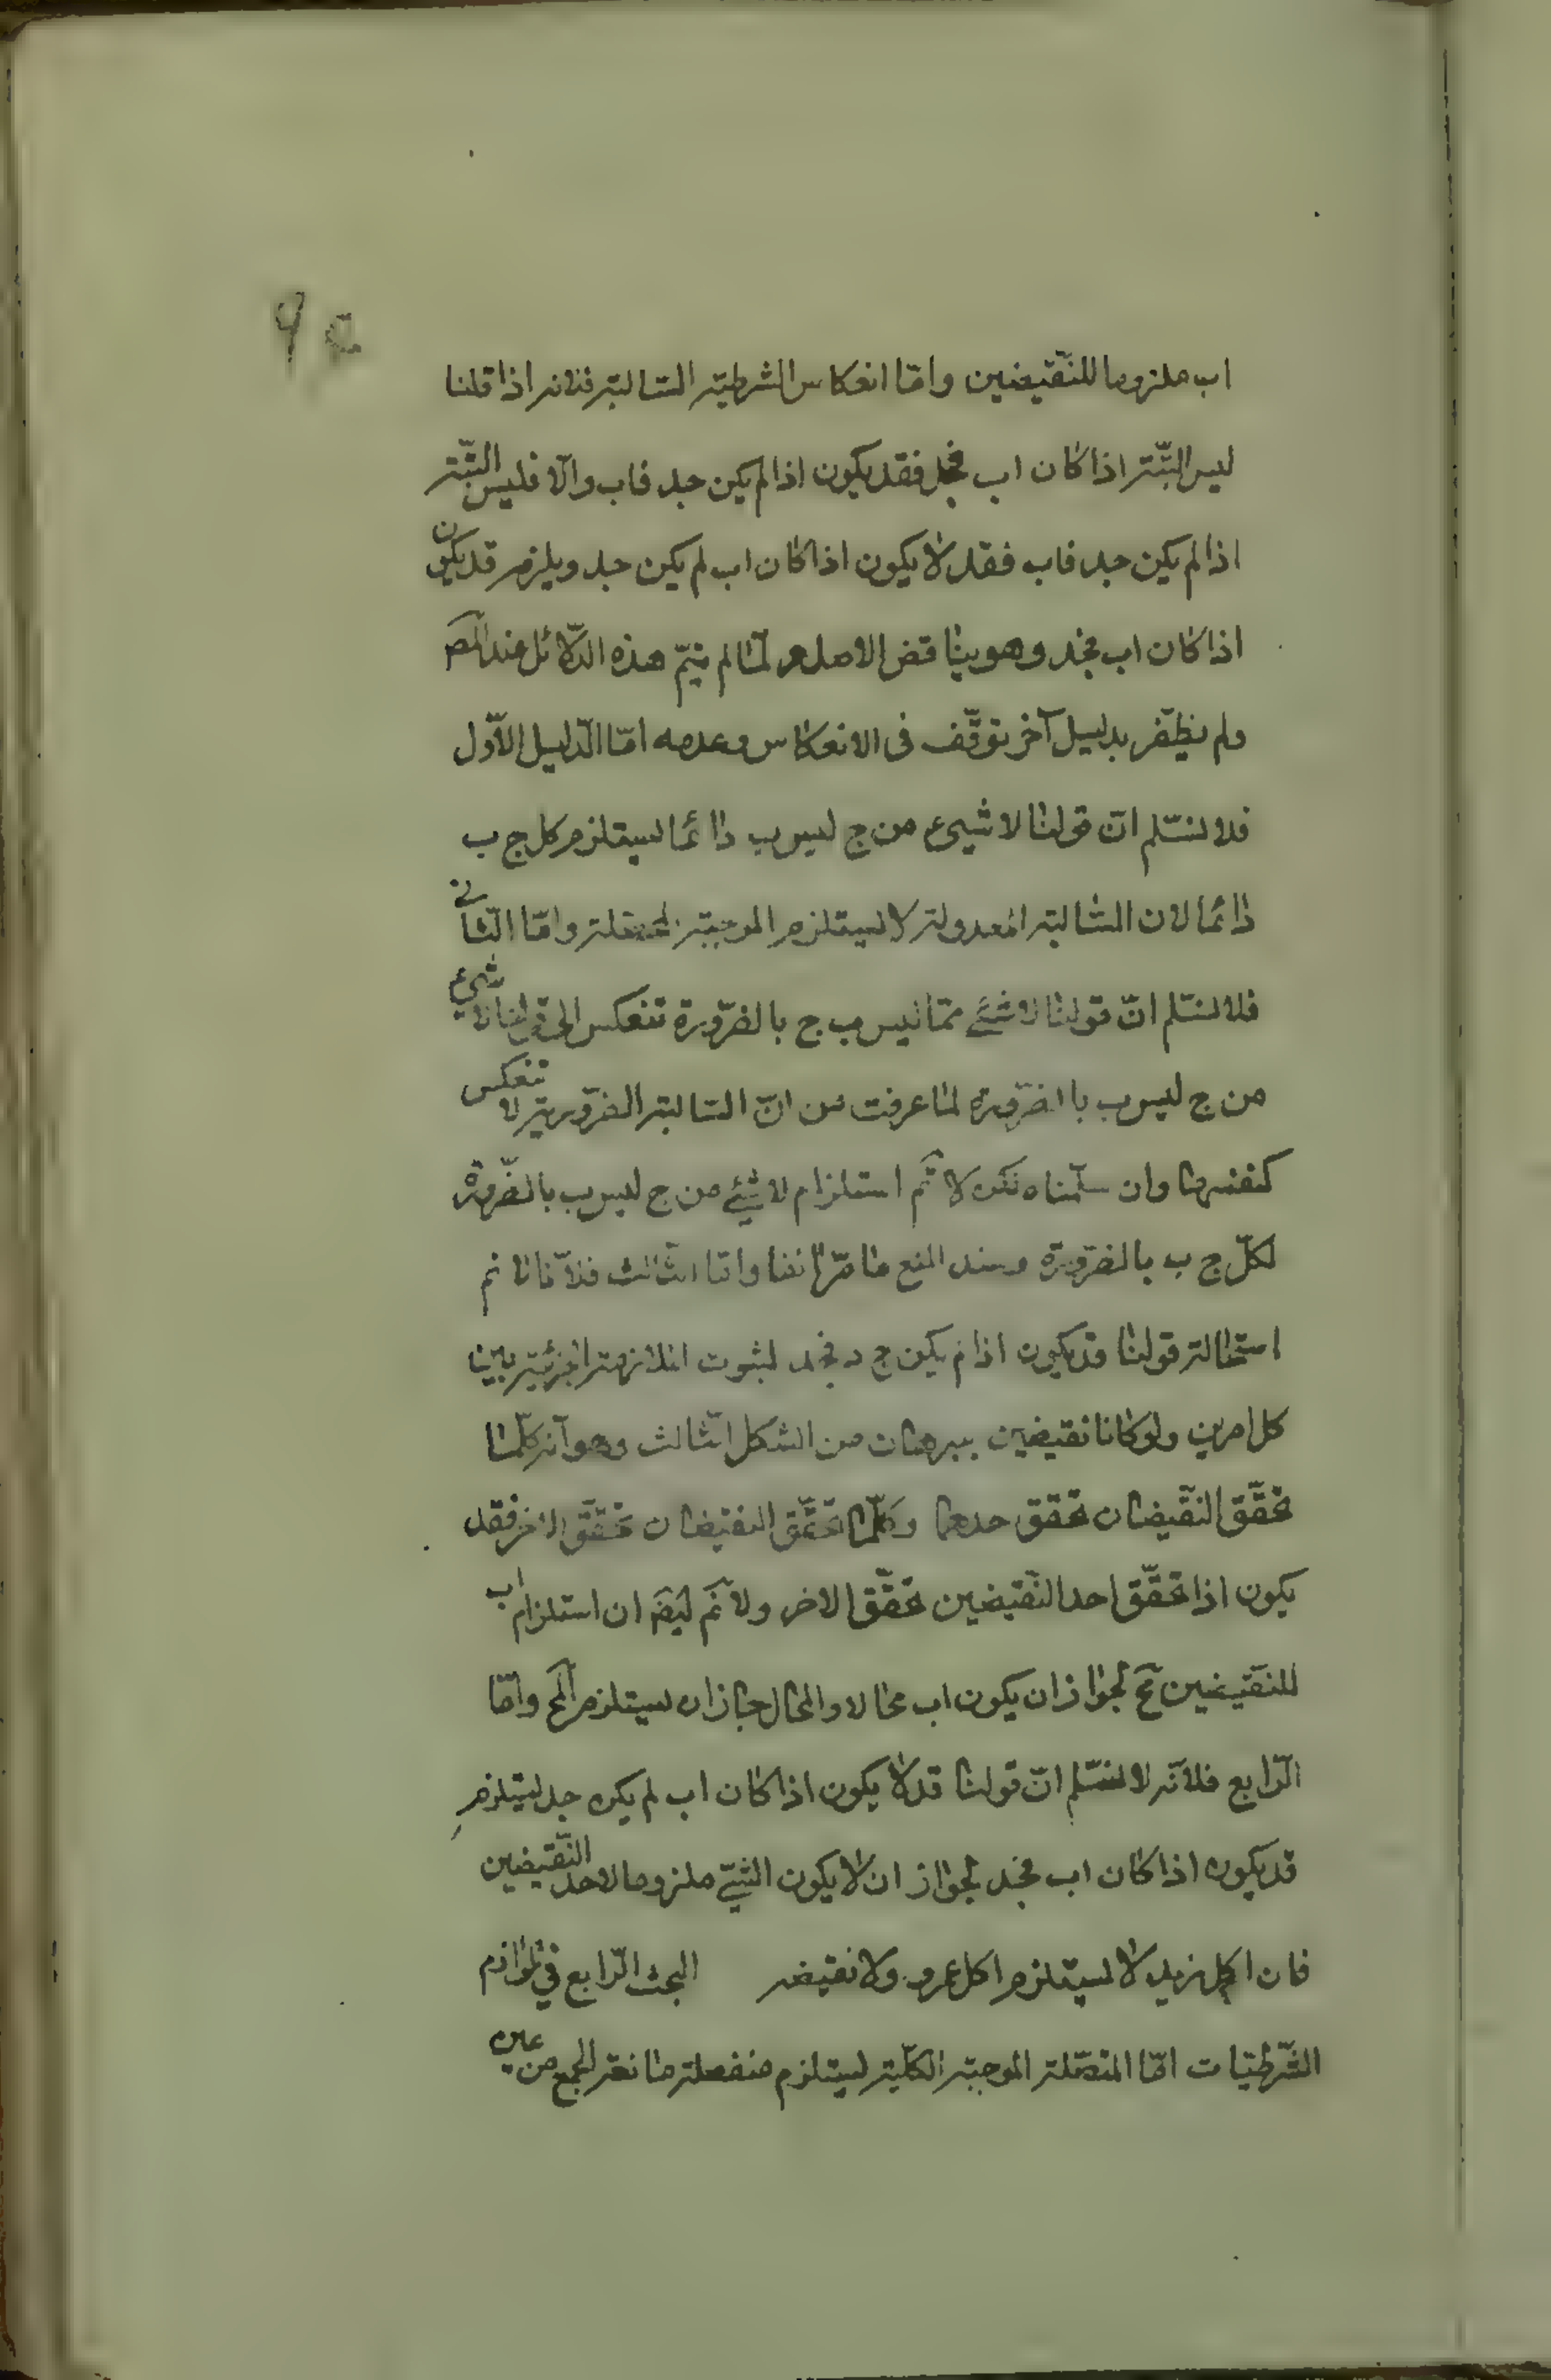 اب ملزوما للنّقيضين وامّا انعكاس الشرطيّة السّالبة فلانه اذا قلنا
ليس البتّة اذا كان اب فجد فقد يكون اذا لم يكن جد فاب والّا فليس البتّة
اذا لم يكن جد فاب فقد لا يكون اذا كان اب لم يكن جد ويلزمه قد يكون
اذا كان اب فجد وهو يناقض الاصل ولمّا لم يتمّ هذه الدّلائل عند المص
ولم يظفر بدليل آخر توقّف فى الانعكاس وعدمه امّا الدّليل الاوّل
فلا نسّلم انّ قولنا لا شيىء من ج ليس ب دائما يستلزم كل ج ب
دائما لان السّالبة المعدولة لا يستلزم الموجبة المحصّلة وامّا الثّانى
فلا نسّلم انّ قولنا لا شئ ممّا ليس ب ج بالضّرورة تنعكس الى قولنا لا شئ
من ج ليس ب بالضّرورة لما عرفت من انّ السّالبة الضّروريّة لا تنعكس
كنفسها وان سلّمناه لكن لا نم استلزام لا شئ من ج ليس ب بالضّرورة
لكلّ ج ب بالضّرورة وسند المنع ما مرّ آنفا وامّا الثّالث فلانّا لا نم
استحالة قولنا قد يكون اذا لم يكن ج د فجد لثبوت الملازمة الجزئيّة بين
كل امرين ولو كانا نقيضين ببرهان من الشكل الثّالث وهو انّه كلّما
تحقّق النّقيضان تحقق احدهما وكلّما تحقّق النقيضان تحقّق الاخر فقد
يكون اذا تحقّق احد النّقيضين تحقّق الاخر ولا نم ايضا ان استلزام اب
للنّقيضين مح لجواز ان يكون اب محالا والمحال جاز ان يستلزم المح وامّا
الرّابع فلانّه لا نسّلم انّ قولنا قد لا يكون اذا كان اب لم يكن جد يستلزم
قد يكون اذا كان اب فجد لجواز ان لا يكون الشئ ملزوما لاحد النّقيضين
فان اكل زيد لا يستلزم اكل عمرو ولا نقيضه البحث الرّابع في لوازم
الشّرطيّات امّا المتصّلة الموجبة الكلّية يستلزم منفصلة مانعة الجمع من عين